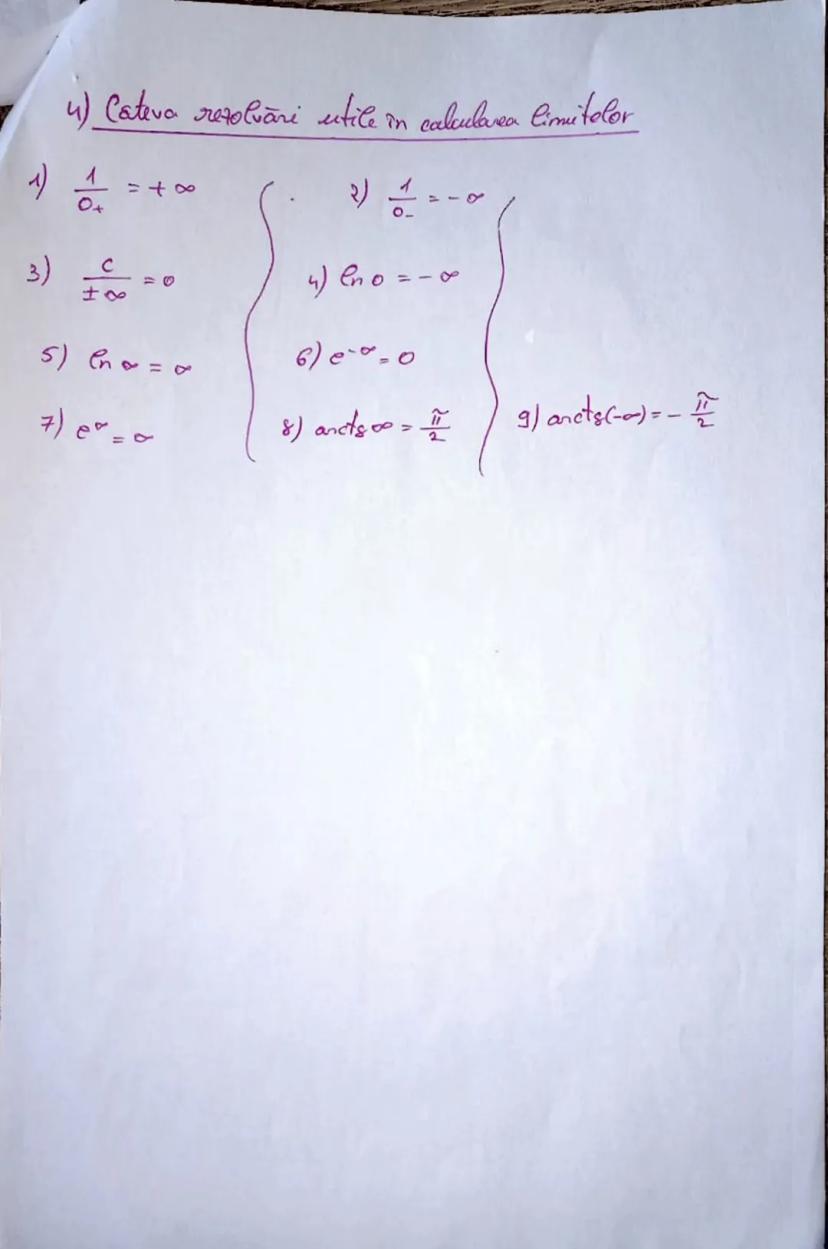 4) Cateva rezolvări utile în calcularea limitelor
1) 1/0₊ = +∞ 2) 1/0₋ = -∞
3) c/±∞ = 0 4) ln 0 = -∞
5) ln ∞ = ∞ 6) e^-∞ = 0
7) e^∞ = ∞ 8) arctg ∞ = π/2 9) arctg(-∞) = - π/2